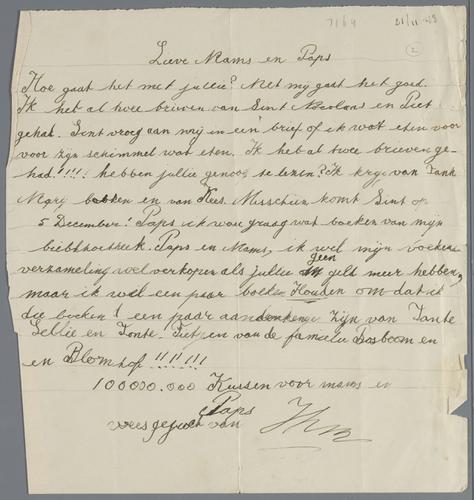 7164 21/11 43
2
Lieve Mams en Paps
Hoe gaat het met jullie? Met mij gaat het goed.
Ik heb al twee brieven van Sint Nicolaas en Piet
gehad. Sint vroeg aan mij in een brief of ik wat eten voor
voor zijn schimmel wat eten. Ik heb al twee brieven ge-
had!!!! hebben jullie genoeg te lezen? Ik kryg van Tante
Mary boeken en van Kees. Misschien komt Sint op
5 December! Paps ik wou graag wat boeken van mijn
Paps en Mams, ik wil mijn boeken
verzameling wel verkopen als jullie geen geld meer hebben,
maar ik wil een paar boeken Houden om dat ik
die boeken! een paar aandenkens zijn van Tante
en Tante van de familie Bosboom en
en Blomhof!!!!!
100000.000 Kussen voor mams en
Paps
wees gegroet van